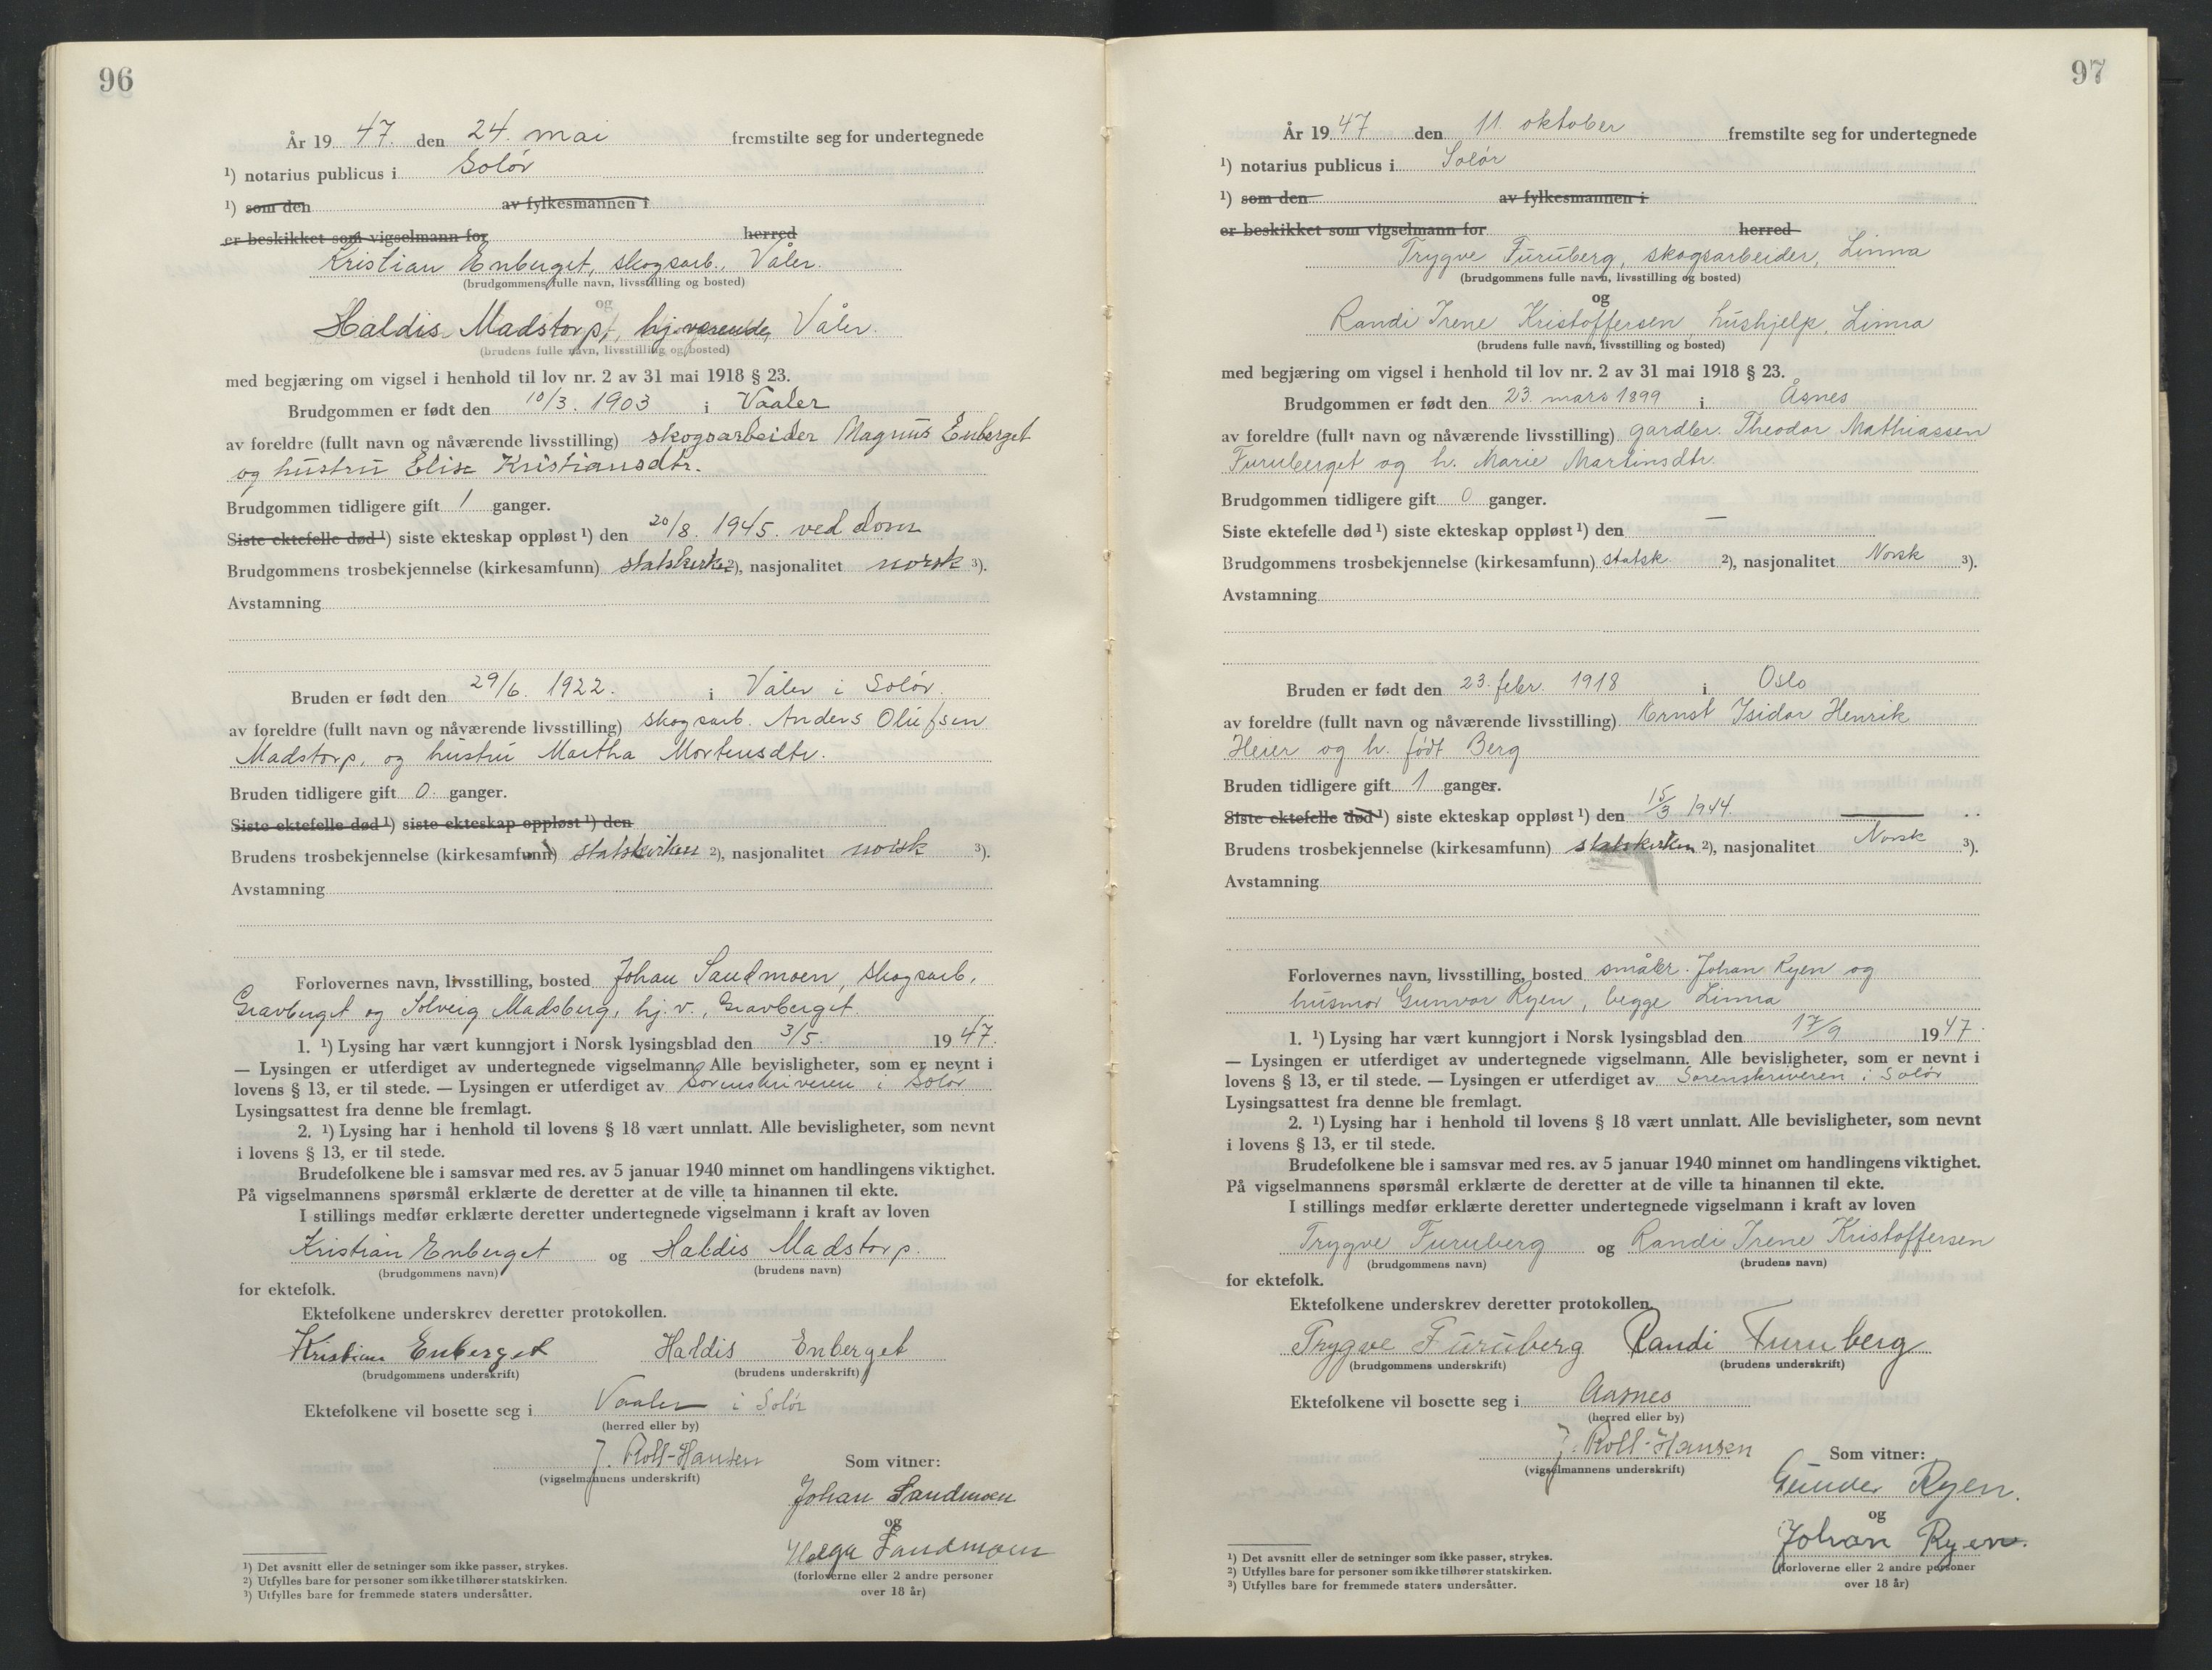 96
År 19 47. den 24. mai fremstilte seg for undertegnede
¹) notarius publicus i Solør
¹) som den av fylkesmannen i
er beskikket som vigselmann for herred
Kristian Enberget, skogsarb., Våler.
(brudgommens fulle navn, livsstilling og bosted)
og
Haldis Madstorp, hj.værende, Våler.
(brudens fulle navn, livsstilling og bosted)
med begjæring om vigsel i henhold til lov nr. 2 av 31 mai 1918 § 23.
Brudgommen er født den 10/3. 1903 i Vaaler
av foreldre (fullt navn og nåværende livsstilling) skogsarbeider Magnus Enberget
og hustru Elise Kristiansdtr.
Brudgommen tidligere gift 1 ganger.
Siste ektefelle død ¹) siste ekteskap oppløst ¹) den 20/8. 1945. ved dom
Brudgommens trosbekjennelse (kirkesamfunn) statskirke ²), nasjonalitet norsk ³).
Avstamning
Bruden er født den 29/6. 1922. i Våler i Solør.
av foreldre (fullt navn og nåværende livsstilling) skogsarb. Anders Olufsen
Madstorp, og hustru Martha Mortensdtr.
Bruden tidligere gift 0 ganger.
Siste ektefelle død ¹) siste ekteskap oppløst ¹) den
Brudens trosbekjennelse (kirkesamfunn) statskirken ²), nasjonalitet norsk ³).
Avstamning
Forlovernes navn, livsstilling, bosted Johan Sandmoen, skogsarb,
Gravberget og Solveig Madsberg, hj.v., Gravberget.
1. ¹) Lysing har vært kunngjort i Norsk lysingsblad den 3/5. 19 47.
— Lysingen er utferdiget av undertegnede vigselmann. Alle bevisligheter, som er nevnt i
lovens § 13, er til stede. — Lysingen er utferdiget av Sorenskriveren i Solør
Lysingsattest fra denne ble fremlagt.
2. ¹) Lysing har i henhold til lovens § 18 vært unnlatt. Alle bevisligheter, som nevnt
i lovens § 13, er til stede.
Brudefolkene ble i samsvar med res. av 5 januar 1940 minnet om handlingens viktighet.
På vigselmannens spørsmål erklærte de deretter at de ville ta hinannen til ekte.
I stillings medfør erklærte deretter undertegnede vigselmann i kraft av loven
Kristian Enberget og Haldis Madstorp.
(brudgommens navn) (brudens navn)
for ektefolk.
Ektefolkene underskrev deretter protokollen.
Kristian Enberget Haldis Enberget
(brudgommens underskrift) (brudens underskrift)
Ektefolkene vil bosette seg i Vaaler i Solør
(herred eller by)
J. Roll-Hansen
(vigselmannens underskrift)
Som vitner:
Johan Sandmoen
og
Helga Sandmoen
(forloverne eller 2 andre personer
over 18 år)
¹) Det avsnitt eller de setninger som ikke passer, strykes.
²) Utfylles bare for personer som ikke tilhører statskirken.
³) Utfylles bare for fremmede staters undersåtter.
97
År 19 47 den 11. oktober fremstilte seg for undertegnede
¹) notarius publicus i Solør
¹) som den av fylkesmannen i
er beskikket som vigselmann for herred
Trygve Furuberg, skogsarbeider, Linna
(brudgommens fulle navn, livsstilling og bosted)
og
Randi Irene Kristoffersen, hushjelp, Linna
(brudens fulle navn, livsstilling og bosted)
med begjæring om vigsel i henhold til lov nr. 2 av 31 mai 1918 § 23.
Brudgommen er født den 23. mars 1899 i Åsnes
av foreldre (fullt navn og nåværende livsstilling) gardbr. Theodor Mathiassen
Furuberget og h. Marie Martinsdtr.
Brudgommen tidligere gift 0 ganger.
Siste ektefelle død ¹) siste ekteskap oppløst ¹) den —
Brudgommens trosbekjennelse (kirkesamfunn) statsk. ²), nasjonalitet Norsk ³).
Avstamning
Bruden er født den 23. febr. 1918 i Oslo
av foreldre (fullt navn og nåværende livsstilling) Ernst Isidor Henrik
Heier og h. født Berg
Bruden tidligere gift 1 ganger.
Siste ektefelle død ¹) siste ekteskap oppløst ¹) den 15/3 1944.
Brudens trosbekjennelse (kirkesamfunn) statskirken ²), nasjonalitet Norsk ³).
Avstamning
Forlovernes navn, livsstilling, bosted småbr. Johan Ryen og
husmor Gunvor Ryen, begge Linna
1. ¹) Lysing har vært kunngjort i Norsk lysingsblad den 17/9 19 47.
— Lysingen er utferdiget av undertegnede vigselmann. Alle bevisligheter, som er nevnt i
lovens § 13, er til stede. — Lysingen er utferdiget av Sorenskriveren i Solør
Lysingsattest fra denne ble fremlagt.
2. ¹) Lysing har i henhold til lovens § 18 vært unnlatt. Alle bevisligheter, som nevnt
i lovens § 13, er til stede.
Brudefolkene ble i samsvar med res. av 5 januar 1940 minnet om handlingens viktighet.
På vigselmannens spørsmål erklærte de deretter at de ville ta hinannen til ekte.
I stillings medfør erklærte deretter undertegnede vigselmann i kraft av loven
Trygve Furuberg og Randi Irene Kristoffersen
(brudgommens navn) (brudens navn)
for ektefolk.
Ektefolkene underskrev deretter protokollen.
Trygve Furuberg Randi Furuberg
(brudgommens underskrift) (brudens underskrift)
Ektefolkene vil bosette seg i Aasnes
(herred eller by)
J. Roll-Hansen
(vigselmannens underskrift)
Som vitner:
Gunvor Ryen.
og
Johan Ryen.
(forloverne eller 2 andre personer
over 18 år)
¹) Det avsnitt eller de setninger som ikke passer, strykes.
²) Utfylles bare for personer som ikke tilhører statskirken.
³) Utfylles bare for fremmede staters undersåtter.